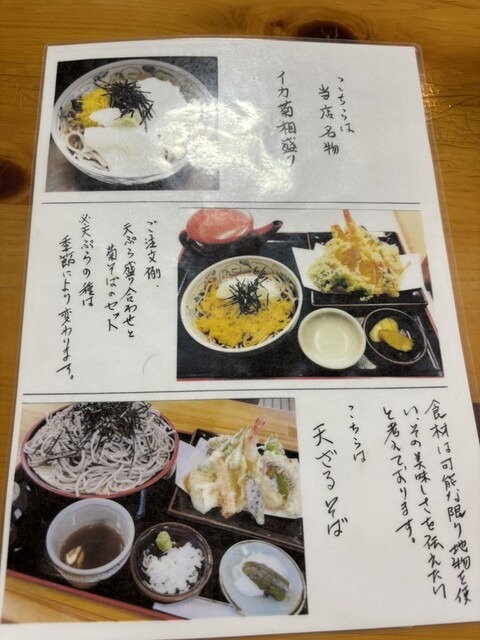 こちらは
当店名物
イカ菊相盛り
ご注文例.
天ぷら盛り合わせと
菊そばのセット
※天ぷらの種は
季節により変わります。
食材は可能な限り地物を使
い、その美味しさを伝えたい
と考えております。
こちらは
天ざるそば